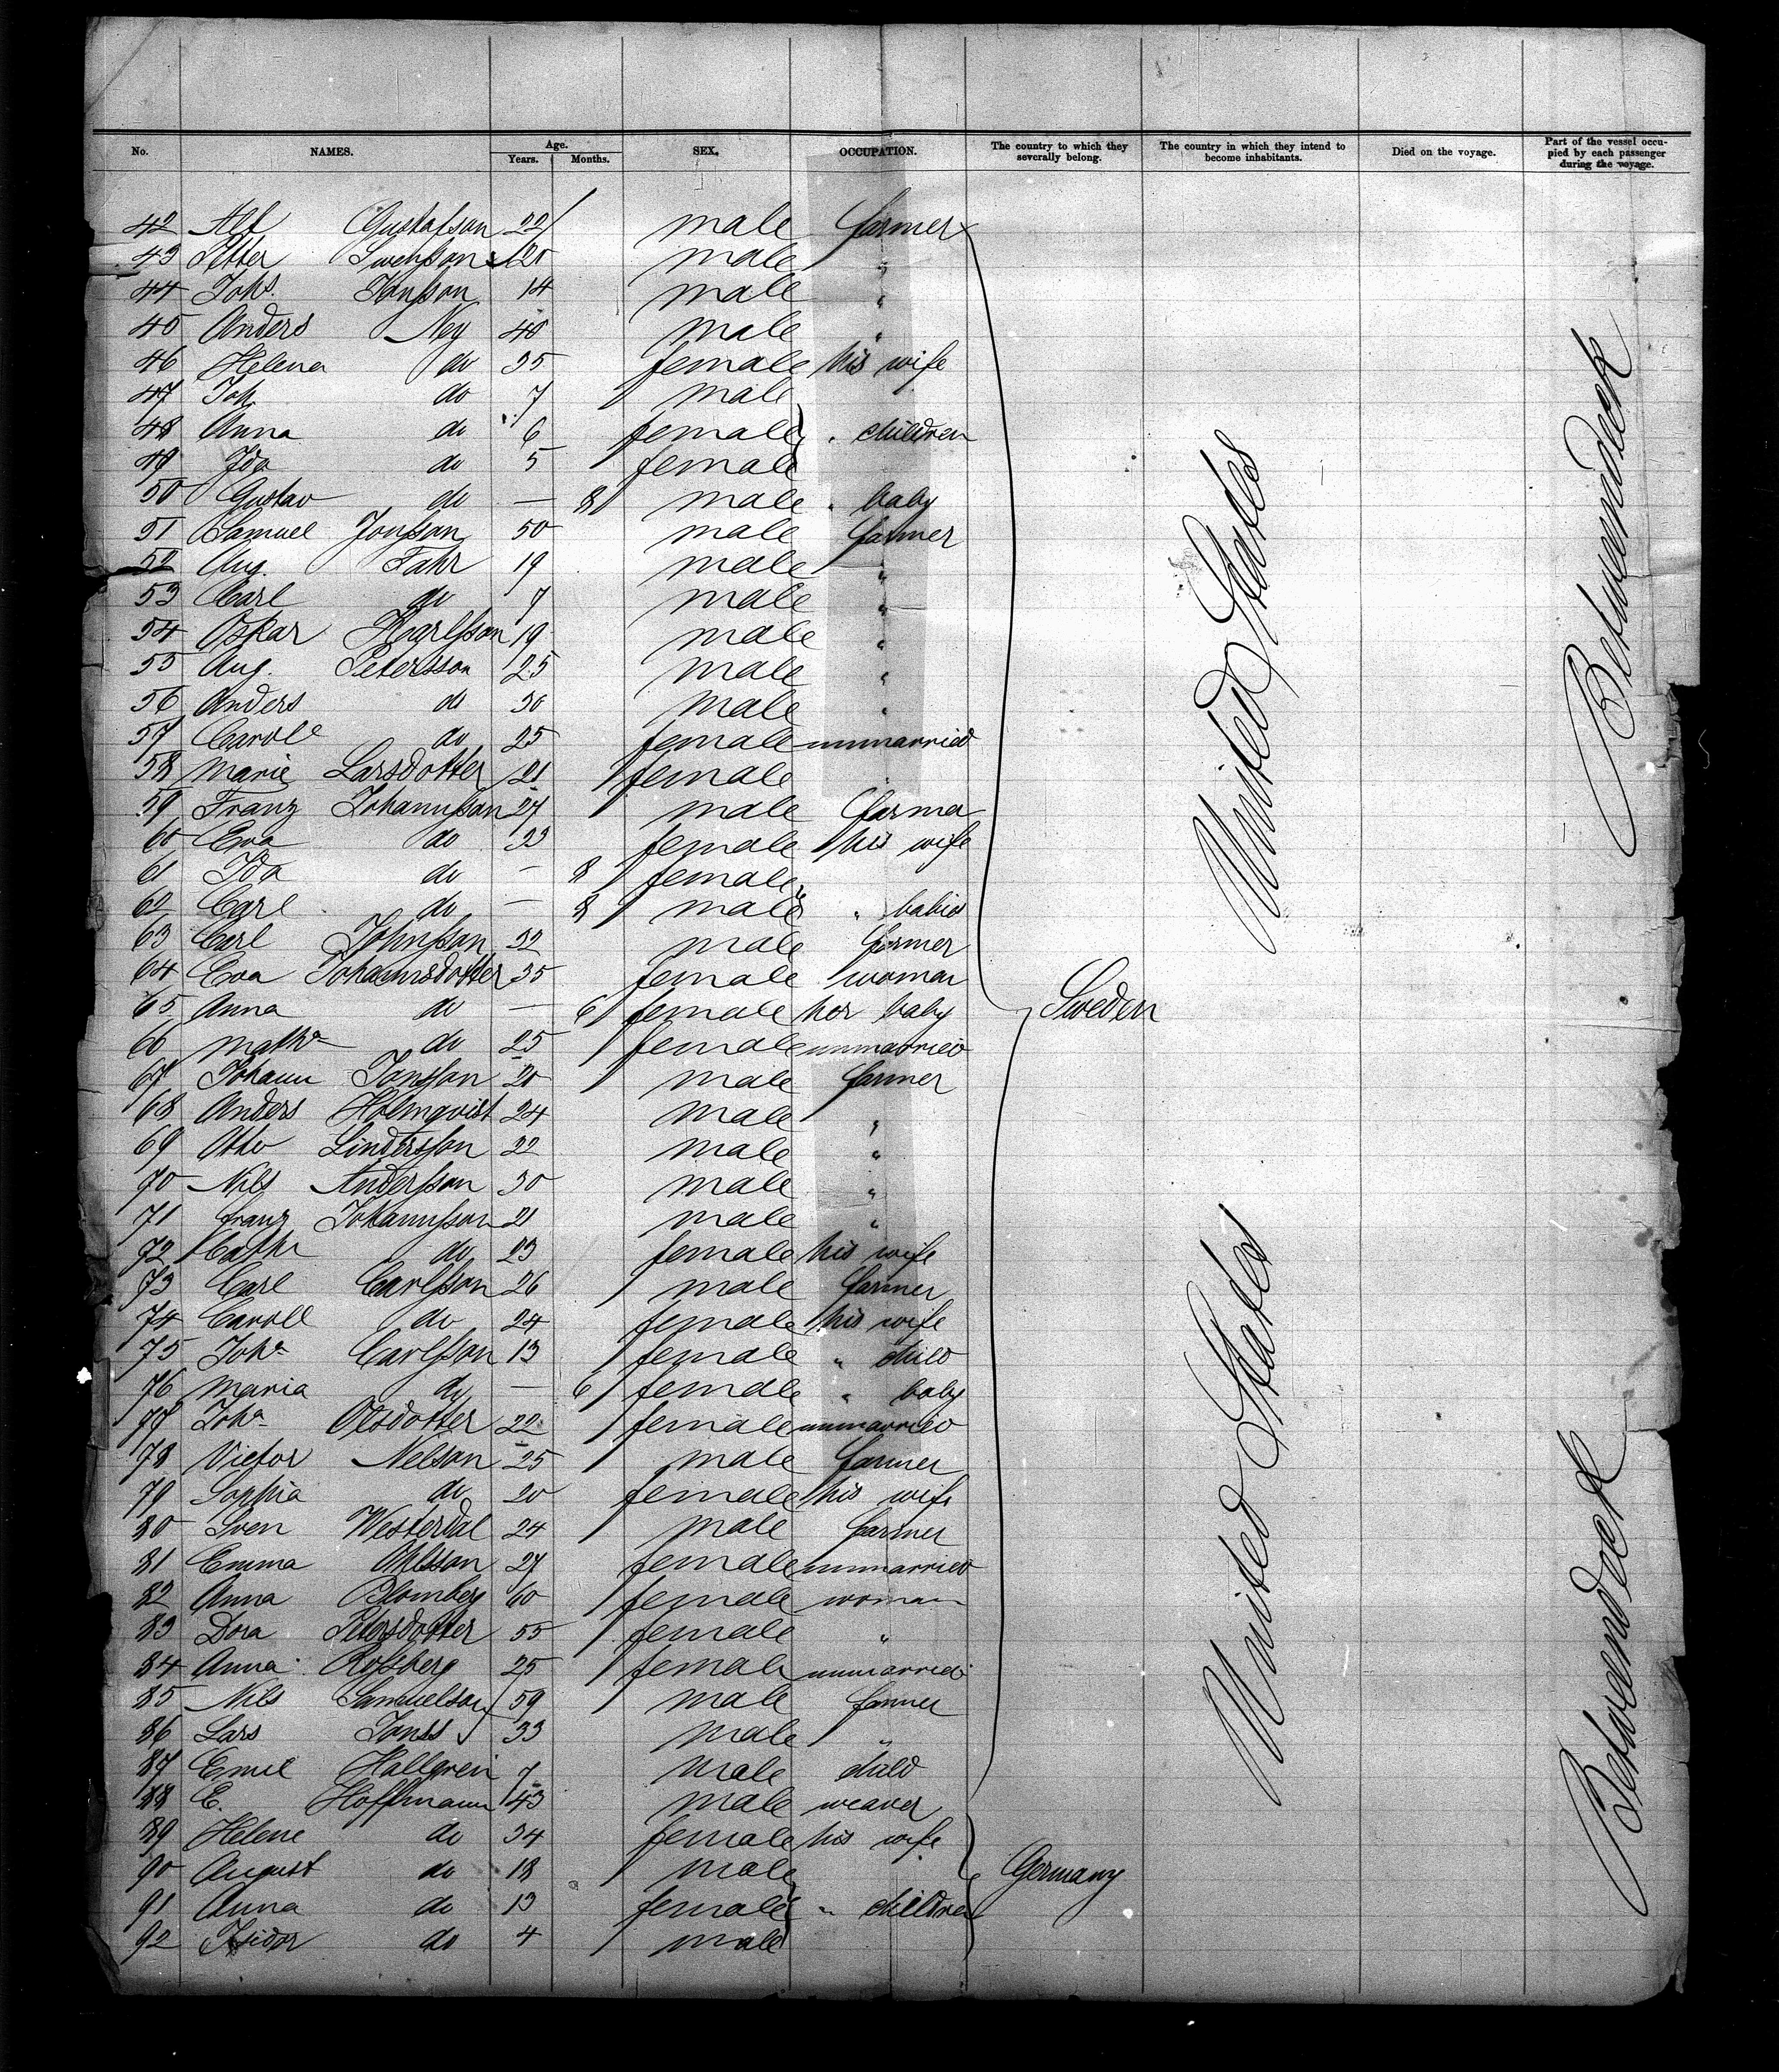 No. NAMES. Age. Years. Months. SEX. OCCUPATION. The country to which they severally belong. The country in which they intend to become inhabitants. Died on the voyage. Part of the vessel occupied by each passenger during the voyage.
42 Alf Gustafson 22 male farmer
43 Petter Swensson 20 male "
44 Johs. Jonsson 14 male "
45 Anders Ney 40 male "
46 Helena do 35 female his wife
47 Joh. do 7 male
48 Anna do 6 female " children
49 Ida do 5 female
50 Gustav do — 8 male " baby
51 Samuel Jonsson 50 male farmer
52 Aug. Fahr 19 male "
53 Carl do 7 male "
54 Oskar Karlsson 19 male "
55 Aug. Petersson 25 male "
56 Anders do 30 male "
57 Caroll do 25 female unmarried
58 Marie Larsdotter 21 female "
59 Franz Johannsson 27 male farmer
60 Eva do 33 female his wife
61 Ida do — 8 female
62 Carl do — 8 male " babies
63 Carl Johnsson 32 male farmer
64 Eva Johannsdotter 35 female woman
65 Anna do — 6 female her baby
66 Matha do 25 female unmarried
67 Johann Jonsson 20 male farmer
68 Anders Holmqvist 24 male "
69 Otto Lindersson 22 male "
70 Nils Andersson 30 male "
71 Franz Johannsson 21 male "
72 Cathr do 23 female his wife
73 Carl Carlsson 26 male farmer
74 Caroll do 24 female his wife
75 Joha Carlsson 13 female " child
76 Maria do — 6 female " baby
77 Joha Olsdotter 22 female unmarried
78 Victor Nelson 25 male farmer
79 Sophia do 20 female his wife
80 Sven Westerdal 24 male farmer
81 Emma Ohlsson 27 female unmarried
82 Anna Blomberg 60 female woman
83 Dora Petersdotter 55 female "
84 Anna Rossberg 25 female unmarried
85 Nils Samuelson 59 male farmer
86 Lars Jonss 33 male "
87 Emil Hallgren 7 male child
88 E. Hoffmann 43 male weaver
89 Helene do 34 female his wife
90 August do 18 male
91 Anna do 13 female " children
92 Isidor do 4 male
Sweden
Germany
United States
United States
Betweendeck
Betweendeck